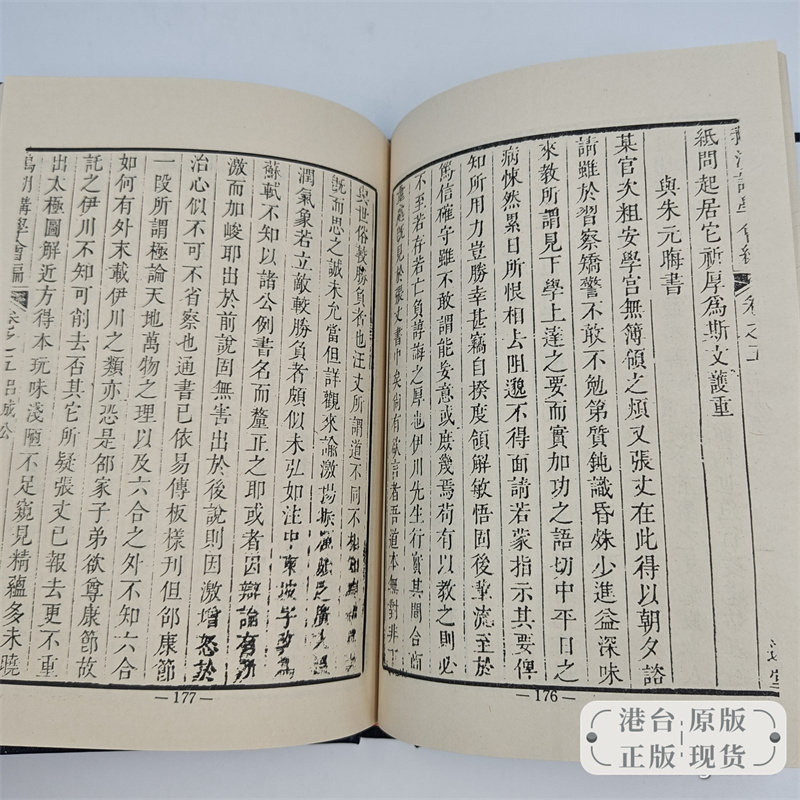 講學會編 卷之五
紙問起居它祈厚爲斯文護重
與朱元晦書
某官次粗安學宮無簿領之煩又張丈在此得以朝夕諮
請雖於習察矯警不敢不勉第質鈍識昏殊少進益深味
來教所謂見下學上達之要而實加功之語切中平日之
病悚然累日所恨相去阻邈不得面請若蒙指示其要俾
知所用力豈勝幸甚竊自揆度領解敏悟固後輩流至於
篤信確守雖不敢謂能妄意或庶幾焉苟有以教之則必
不至若存若亡負諄誨之厚也伊川先生行實其間合商
既見於張丈書中矣尚有欲言者吾道本無對非下
—176—
與世俗較勝負者也汪丈所謂道不同不相
既而思之誠未允當但詳觀來諭激揚振厲頗乏廣大
潤氣象若立敵較勝負者頗似未弘如注中東坡字爲
蘇軾不知以諸公例書名而釐正之耶或者因辯論有所
激而加峻耶出於前說固無害出於後說則因激增怒於
治心似不可不省察也通書已依易傳板樣刊但邵康節
一段所謂極論天地萬物之理以及六合之外不知六合
如何有外末載伊川之類亦恐是邵家子弟欲尊康節故
託之伊川不知可削去否其它所疑張丈已報去更不重
出太極圖解近方得本玩味淺陋不足窺見精蘊多未曉
湖講學會編 卷之五 呂成公
—177—
港台 原版
正版 现货